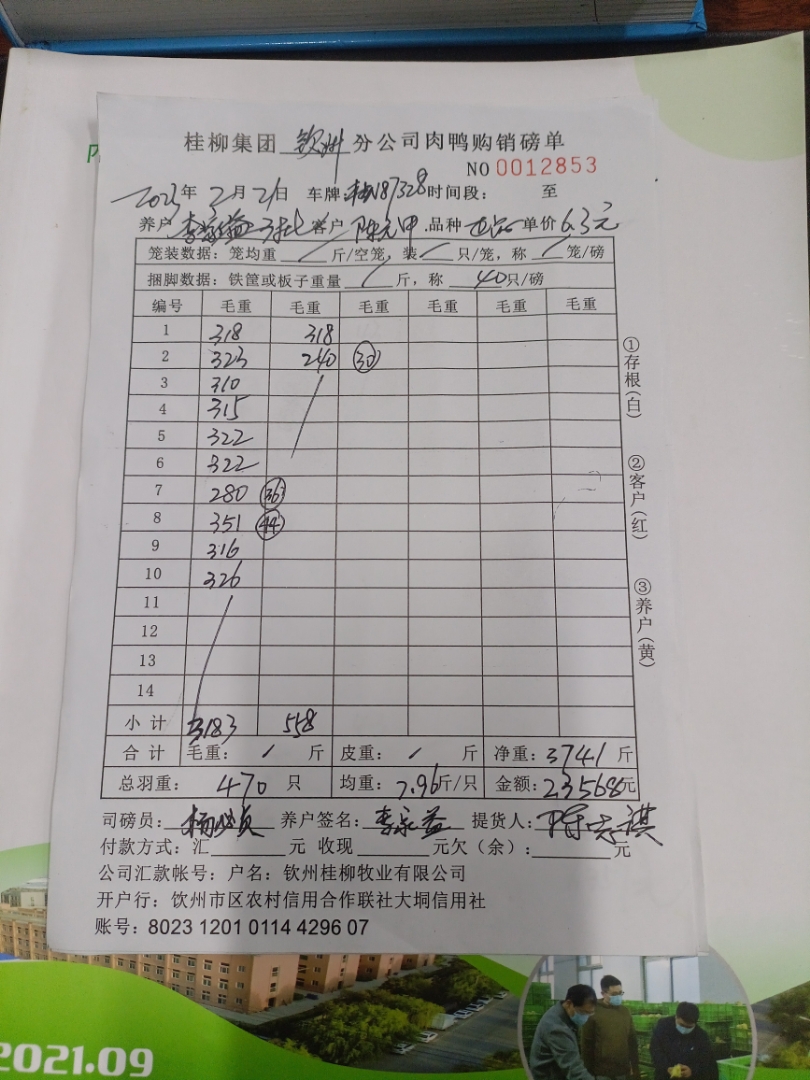 桂柳集团 钦州 分公司肉鸭购销磅单
NO 0012853
2023年 2月 21日 车牌: 187328 时间段: 至
养户 李家益 客户 陈 品种 单价 6.3元
笼装数据: 笼均重 / 斤/空笼, 装 / 只/笼, 称 / 笼/磅
捆脚数据: 铁筐或板子重量 / 斤, 称 40 只/磅
编号 毛重 毛重 毛重 毛重 毛重 毛重
1 318 318
2 323 240 30
3 310
4 315
5 322
6 322
7 280 36
8 351 44
9 316
10 326
11
12
13
14
小计 3183 558
合计 毛重: / 斤 皮重: / 斤 净重: 3741 斤
总羽重: 470 只 均重: 7.96斤/只 金额: 23568元
司磅员: 杨 养户签名: 李家益 提货人: 陈志祺
付款方式: 汇 元 收现 元欠(余): 元
公司汇款帐号: 户名: 钦州桂柳牧业有限公司
开户行: 钦州市区农村信用合作联社大垌信用社
账号: 8023 1201 0114 4296 07
①存根(白)
②客户(红)
③养户(黄)
2021.09